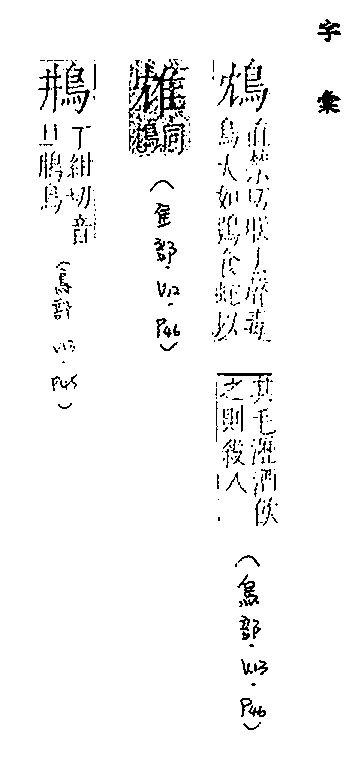 字彙
鴆
直禁切朕去聲毒
鳥大如鴞食蛇以
其毛瀝酒飲
之則殺人
(鳥部·V13·P46)
同
鴆
(隹部·V12·P46)
丁紺切音
鳥
(鳥部·V13·P45)